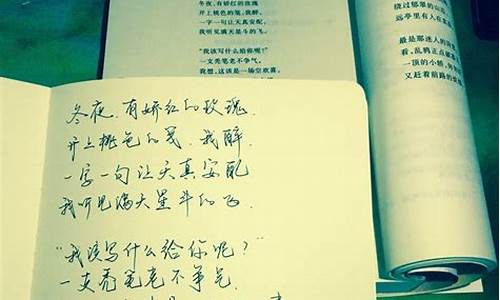 冬夜,有娇红的玫瑰
开上桃色的笺,我醉,
一字一句让天真安配,
我听见满天星斗的飞。
“我该写什么给你呢?”
一支秃笔老不争气,
我想,这该是一场空欢喜。
绕过郁翠的山
远亭里有人在
最是那迷人的
看,乱鸦正点
一顶的小轿,
又赶着前路的
冬夜,有娇红的玫瑰,
开上桃色的笺,我醉,
一字一句让天真安配
我听见满天星斗的飞
“我该写什么给你呢?”
一支秃笔老不争气,